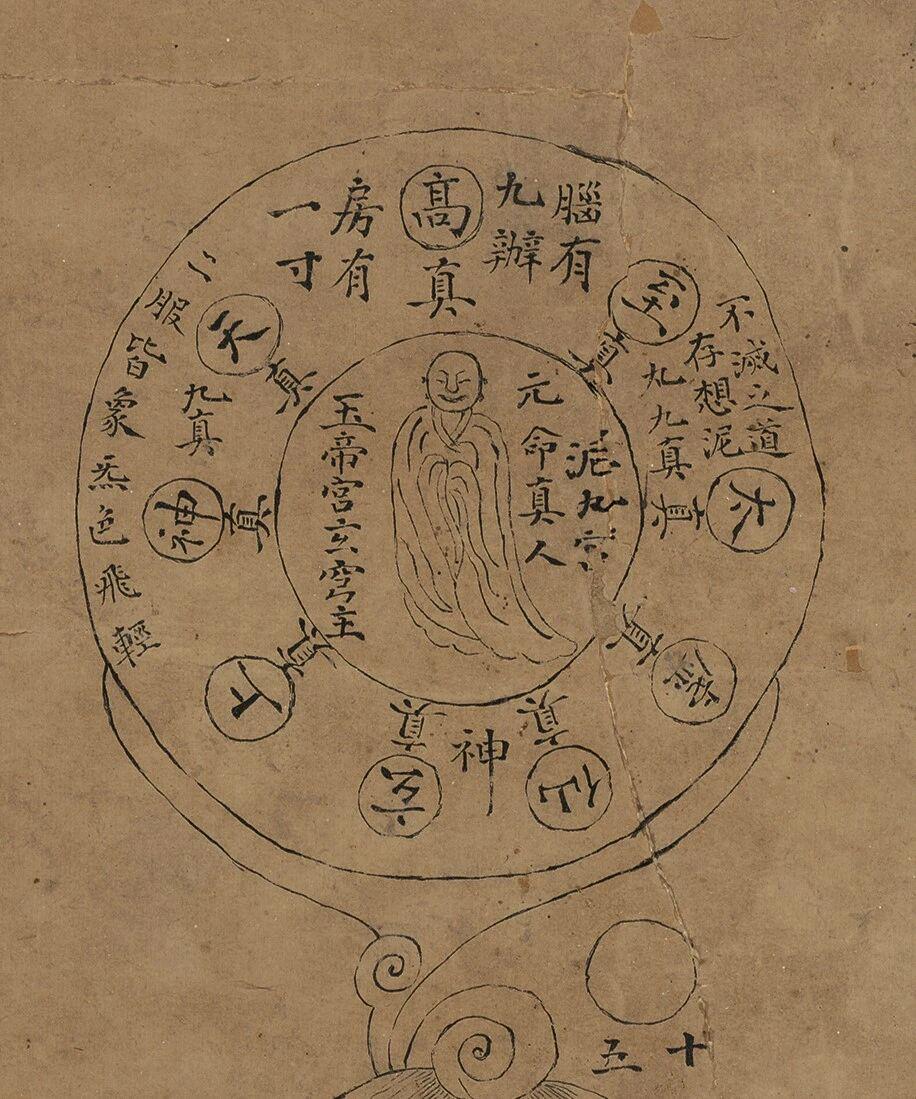 腦有
九辦
高
真
房有
一寸
不滅之道
存想泥
丸九真
太
真
真
真
仙
真
神
玄
真
上
真
神
真
天
真
九真
二服皆象炁色飛輕
泥丸宮
元命真人
玉帝宮玄穹主
十
五